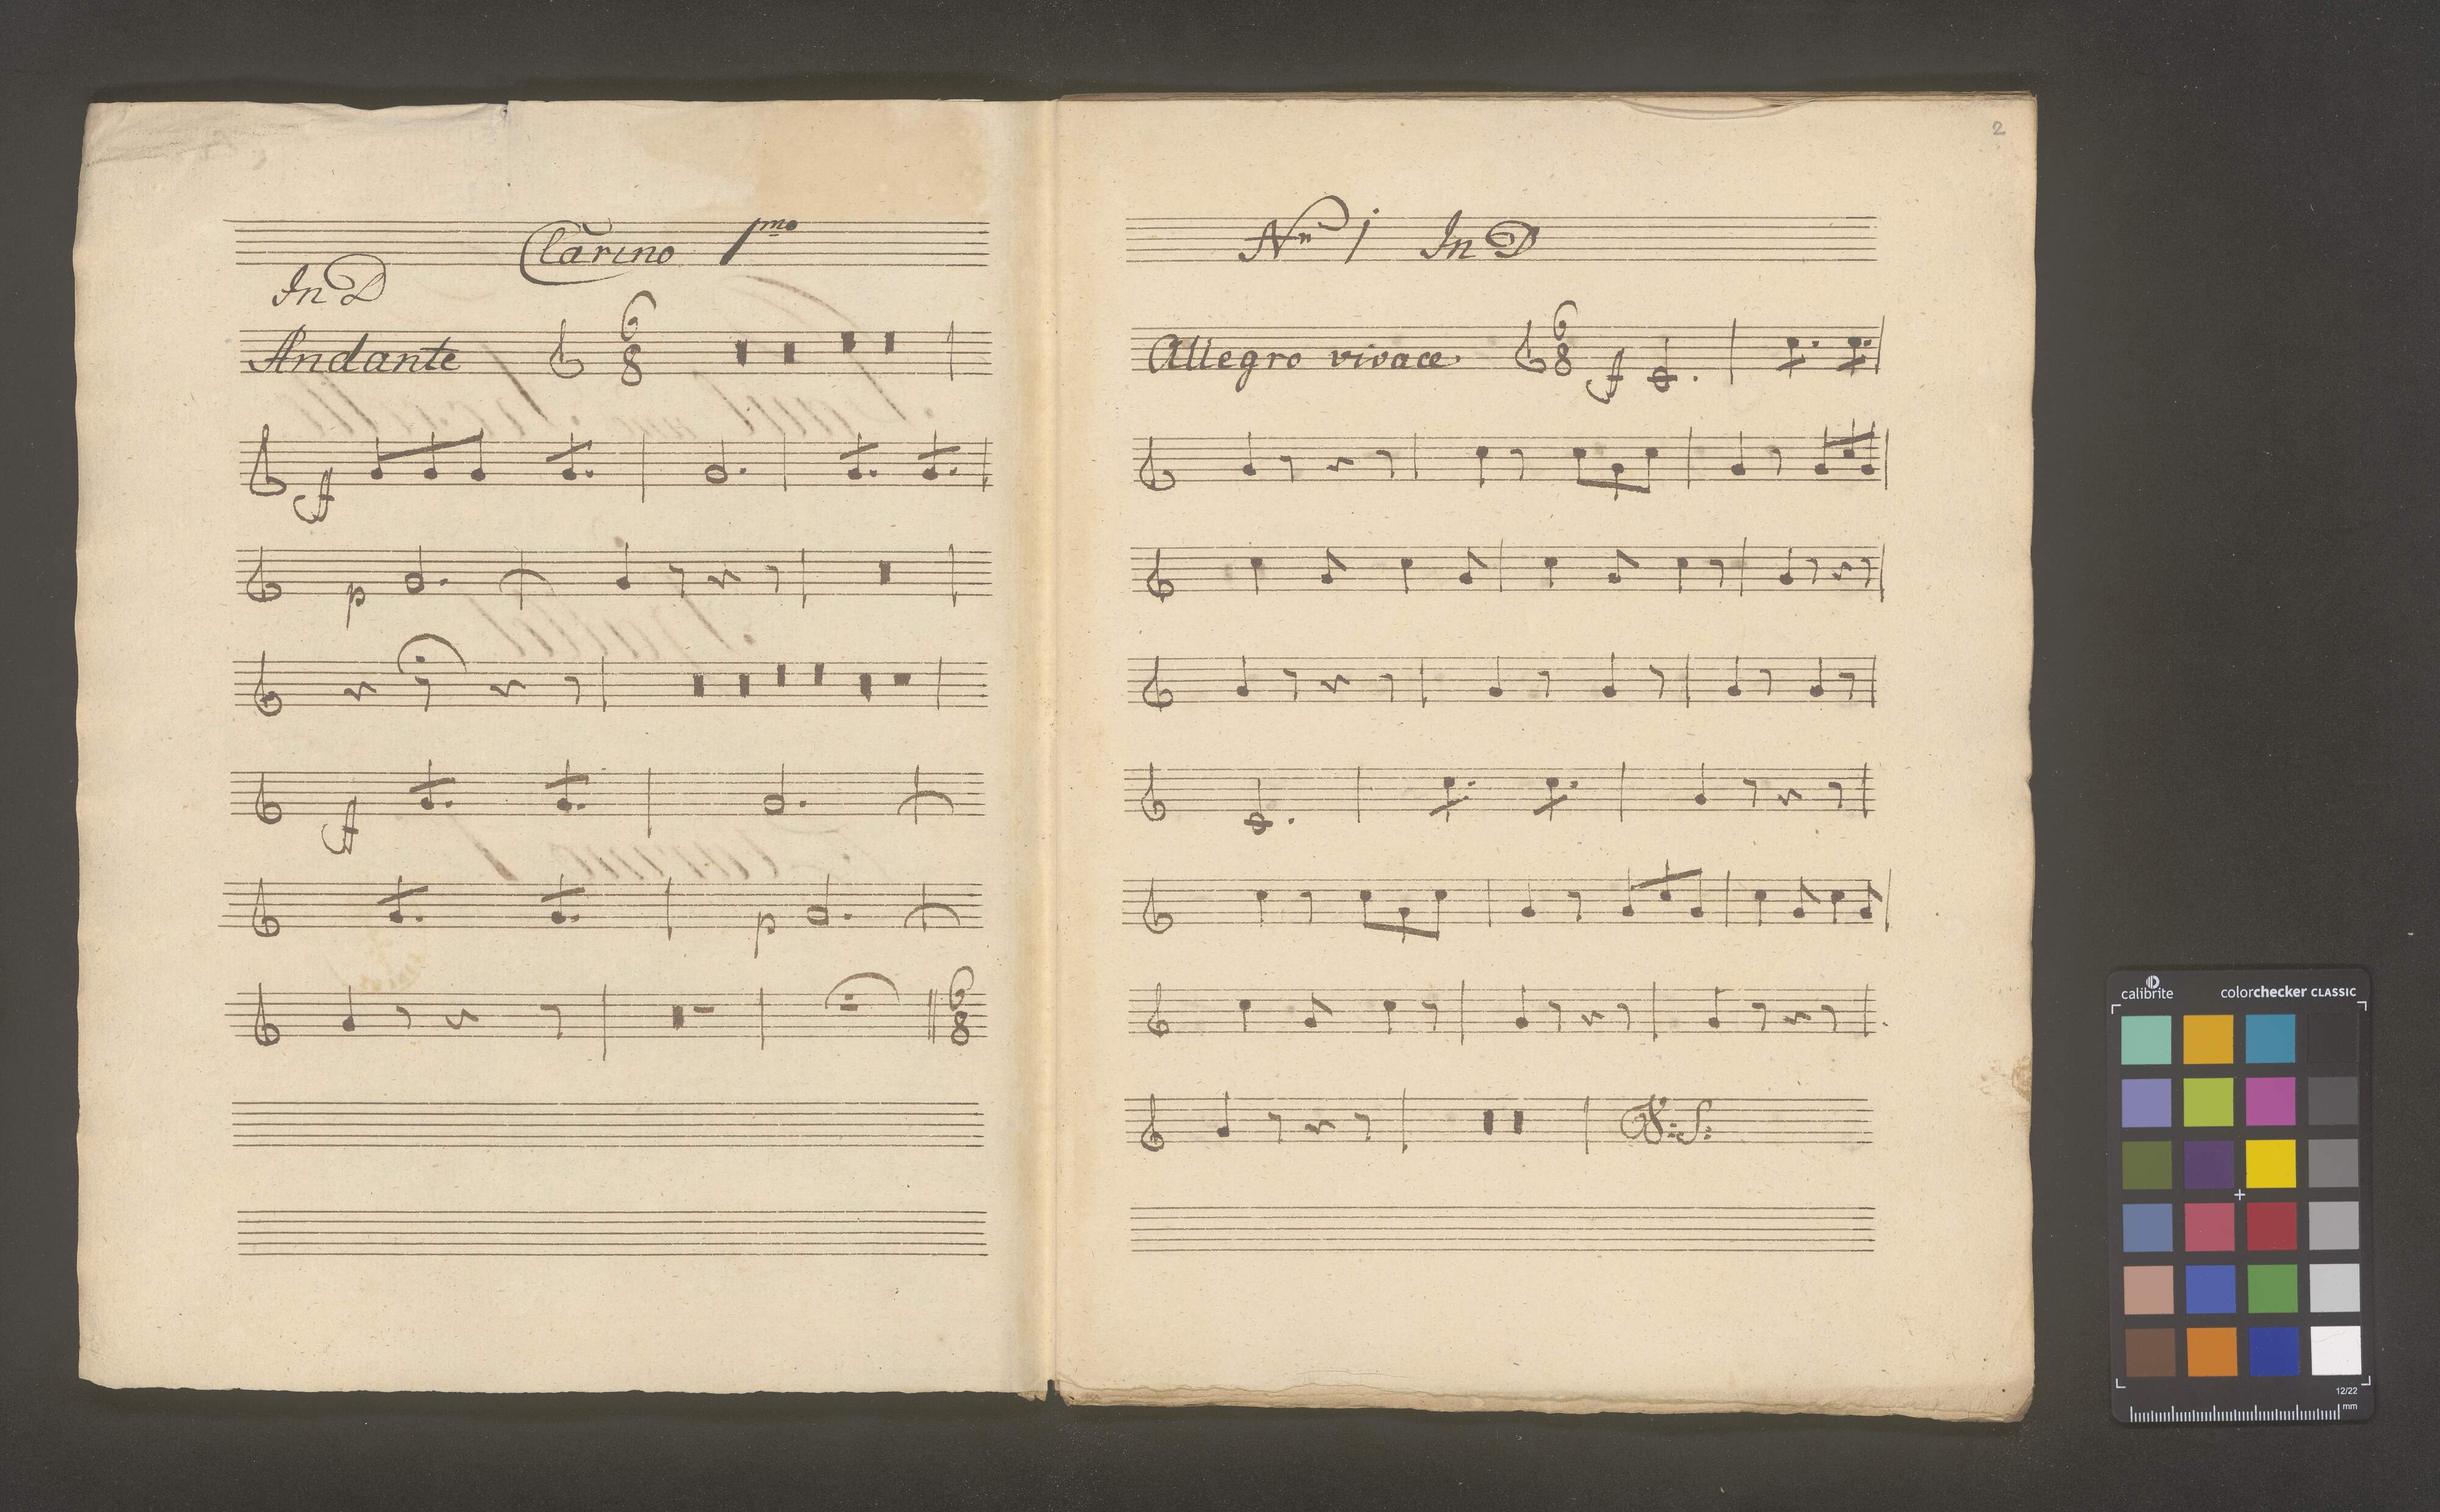 Clarino 1mo
In D
Andante 6 8
f
p
f
p
6 8
2
No 1 In D
Allegro vivace 6 8 f
V. S.
calibrite colorchecker CLASSIC
12/22
mm